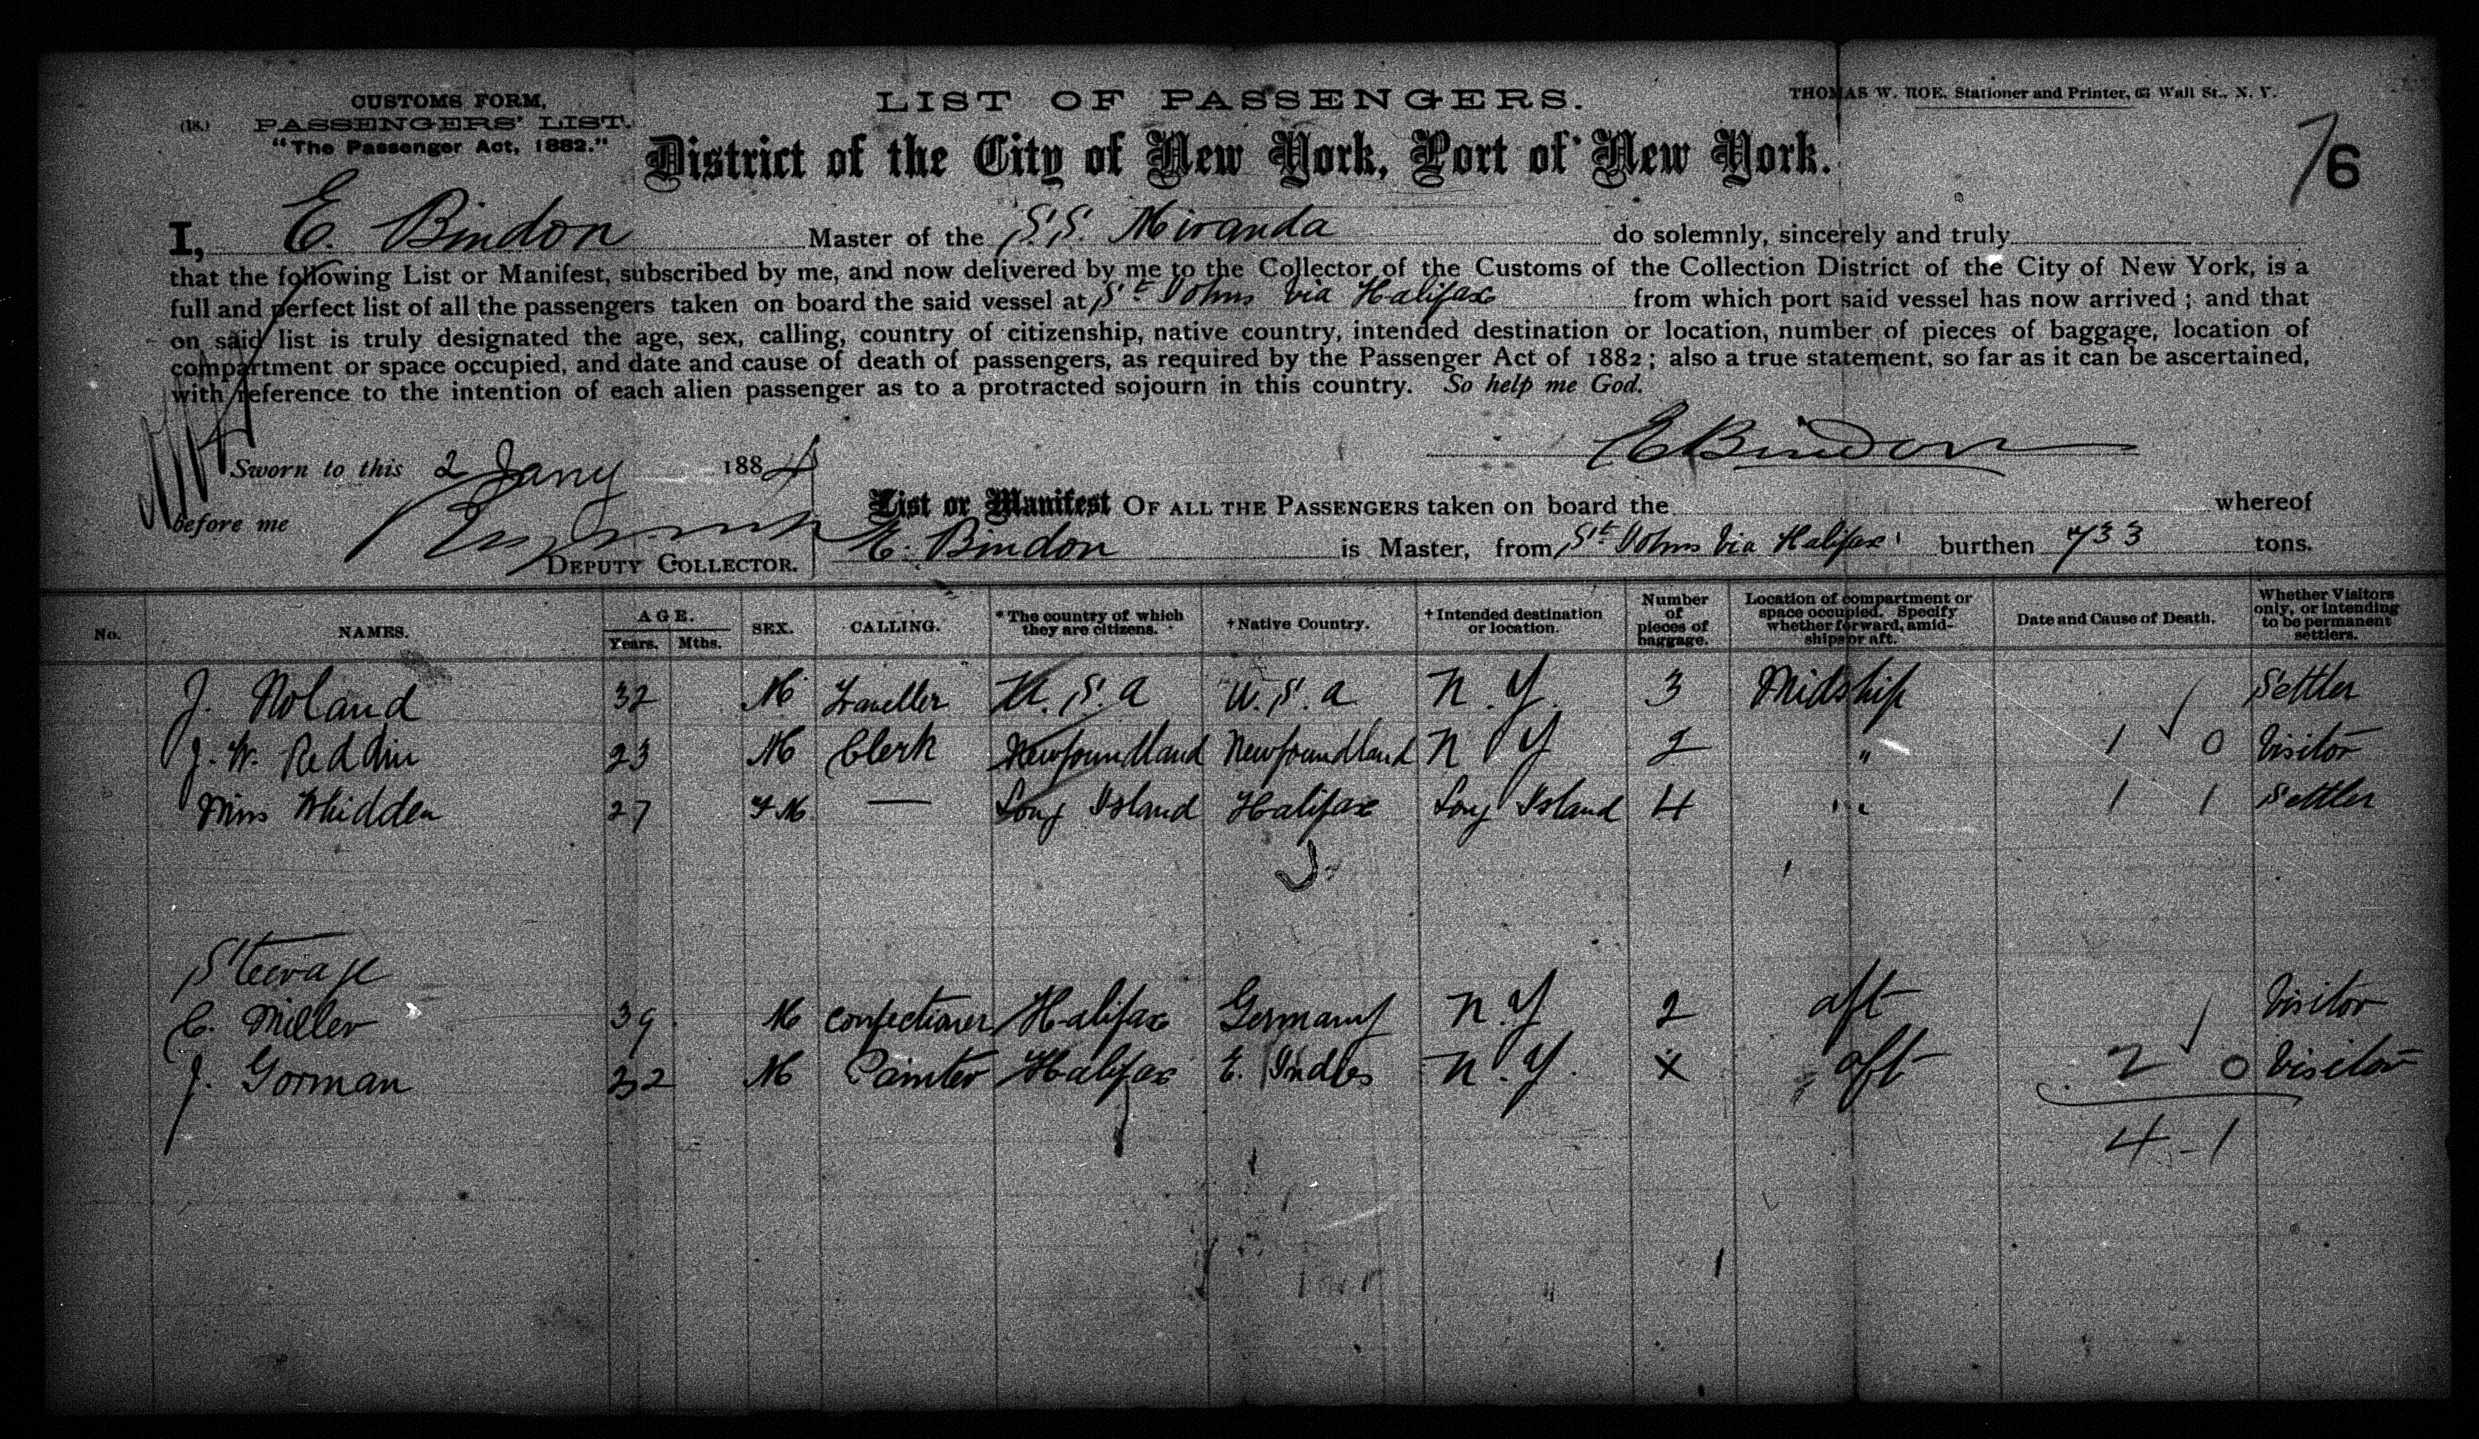 CUSTOMS FORM,
(18.) PASSENGERS' LIST.
"The Passenger Act, 1882."
LIST OF PASSENGERS.
THOMAS W. ROE, Stationer and Printer, 63 Wall St., N. Y.
District of the City of New York, Port of New York.
6
I, E. Bindon Master of the S.S. Miranda do solemnly, sincerely and truly
that the following List or Manifest, subscribed by me, and now delivered by me to the Collector of the Customs of the Collection District of the City of New York, is a
full and perfect list of all the passengers taken on board the said vessel at St Johns via Halifax from which port said vessel has now arrived; and that
on said list is truly designated the age, sex, calling, country of citizenship, native country, intended destination or location, number of pieces of baggage, location of
compartment or space occupied, and date and cause of death of passengers, as required by the Passenger Act of 1882; also a true statement, so far as it can be ascertained,
with reference to the intention of each alien passenger as to a protracted sojourn in this country. So help me God.
E Bindon
Sworn to this 2 Jany 1884
before me
DEPUTY COLLECTOR.
List or Manifest OF ALL THE PASSENGERS taken on board the whereof
E. Bindon is Master, from St Johns via Halifax burthen 733 tons.
No. NAMES. AGE. Years. Mths. SEX. CALLING. *The country of which they are citizens. †Native Country. †Intended destination or location. Number of pieces of baggage. Location of compartment or space occupied. Specify whether forward, amidships or aft. Date and Cause of Death. Whether Visitors only, or intending to be permanent settlers.
J. Noland 32 M Traveller U.S.A U.S.A N.Y. 3 Midship Settler
J. W. Reddin 23 M Clerk Newfoundland Newfoundland N Y 2 " 1 0 Visitor
Miss Whidden 27 F M — Long Island Halifax Long Island 4 " 1 1 Settler
Steerage
C. Miller 39 M Confectioner Halifax Germany N.Y 2 aft Visitor
J. Gorman 32 M Painter Halifax E. Indies N.Y. x aft 2 0 Visitor
4 - 1